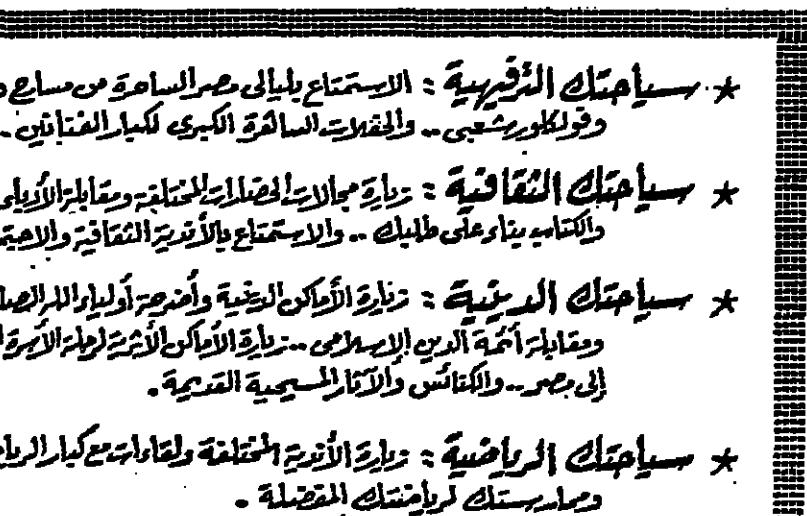 ★ سياحتك الترفيهية : الاستمتاع بليالى مصر الساحرة من مسارح
وفولكلور شعبى .. والحفلات الساهرة الكبرى لكبار الفنانين .
★ سياحتك الثقافية : زيارة مجالات الحضارات المختلفة ومقابلة الأدباء
والكتاب بناء على طلبك .. والاستمتاع بالأندية الثقافية
★ سياحتك الدينية : زيارة الأماكن الدينية وأضرحة أولياء الله
ومقابلة أئمة الدين الإسلامى .. زيارة الأماكن الأثرية لرحلة الأسرة
إلى مصر .. والكنائس والآثار المسيحية القديمة .
★ سياحتك الرياضية : زيارة الأندية المختلفة ولقاءات مع كبار
وممارستك لرياضتك المفضلة .